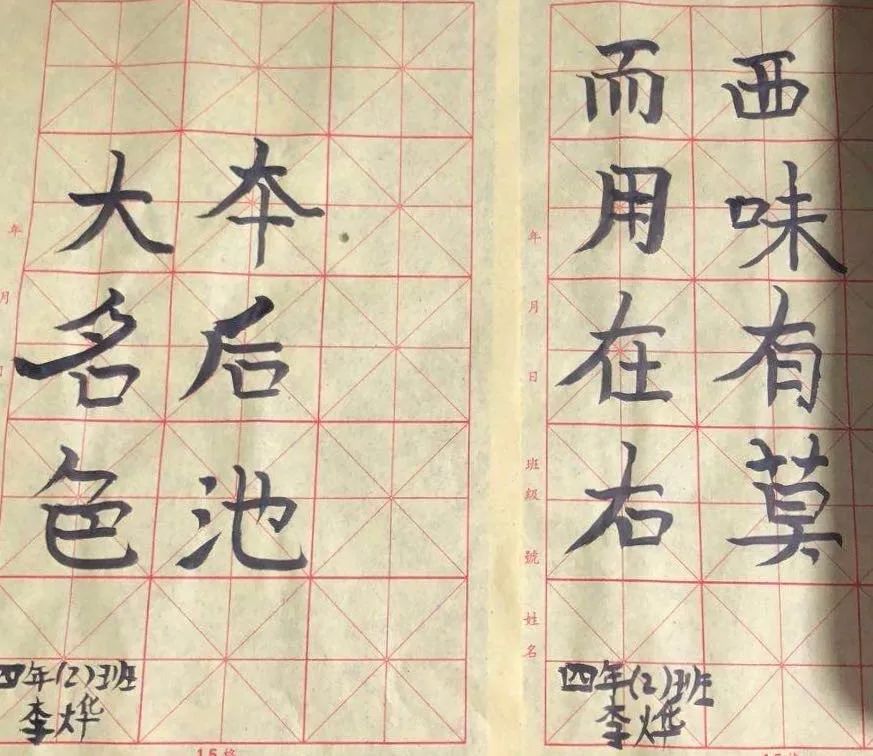 西味有莫
而用在右
年月日班級號姓名
四年(2)班
李烨
本后池
大名色
年月
四年(2)班
李烨